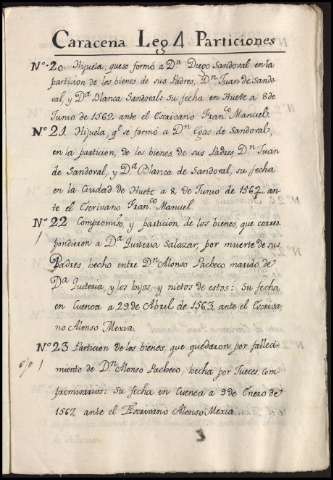 Caracena Leg 4 Particiones
Nº 20 Hijuela, que se formó à Dn Diego Sandoval en la
particion de los bienes de sus Padres, Dn Juan de Sando
val, y Da Blanca Sandoval: su fecha en Huete a 8 de
Junio de 1562 ante el Escrivano Franco Manuel.
Nº 21 Hijuela, q se formó a Dn Egas de Sandoval,
en la particion, de los bienes de sus Padres Dn Juan
de Sandoval, y Da Blanca de Sandoval, su fecha
en la Ciudad de Huete a 8 de Junio de 1562 an
te el Escrivano Franco Manuel.
Nº 22 Compromiso, y particion, de los bienes, que corres
pondieron à Da Quiteria Salazar, por muerte de sus
Padres hecho entre Dn Alonso Pacheco marido de
Da Quiteria, y los hijos, y nietos de estos: Su fecha
en Cuenca a 29 de Abril de 1563 ante el Escriva
no Alonso Mexia.
Nº 23 Particion de los bienes, que quedaron por falleci
miento de Dn Alonso Pacheco hecha por Jueces com
promisarios: su fecha en Cuenca a 9 de Enero de
1567 ante el Escrivano Alonso Mexia